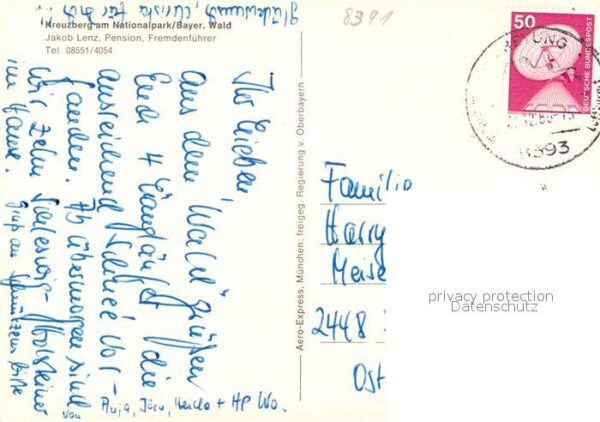 glückwunsch, Christa für Dich !!
Kreuzberg am Nationalpark/Bayer. Wald
Jakob Lenz, Pension, Fremdenführer
Tel. 08551/4054
8391
50
DEUTSCHE BUNDESPOST
8393
Ihr Lieben,
Aus dem "Wald" grüßen
Euch 4 die
ausreichend Schnee vor-
fanden. Ab übermorgen sind
wir zehn Schleswig-Holsteiner
im Hause.
Gruß an bitte
von
Anja, Jörn, + HP Wo.
Aero-Express, München; freigeg. Regierung v. Oberbayern
Familie
Harry
Meise
2448
Ost
privacy protection
Datenschutz